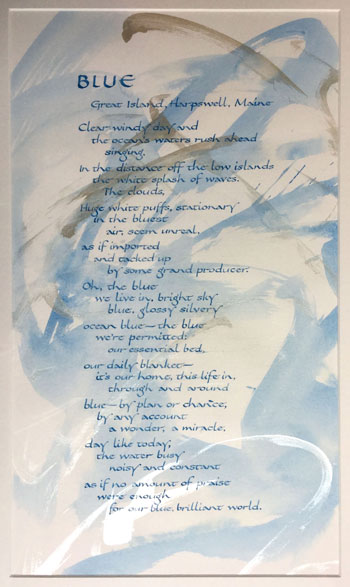 BLUE
Great Island, Harpswell, Maine
Clear windy day and
the ocean's waters rush ahead
singing.
In the distance off the low islands
the white splash of waves.
The clouds,
Huge white puffs, stationary
in the bluest
air, seem unreal,
as if imported
and tacked up
by some grand producer.
Oh, the blue
we live in, bright sky
blue, glossy silvery
ocean blue—the blue
we're permitted:
our essential bed,
our daily blanket—
it's our home, this life in,
through and around
blue—by plan or chance,
by any account
a wonder, a miracle,
day like today;
the water busy
noisy and constant
as if no amount of praise
were enough
for our blue, brilliant world.